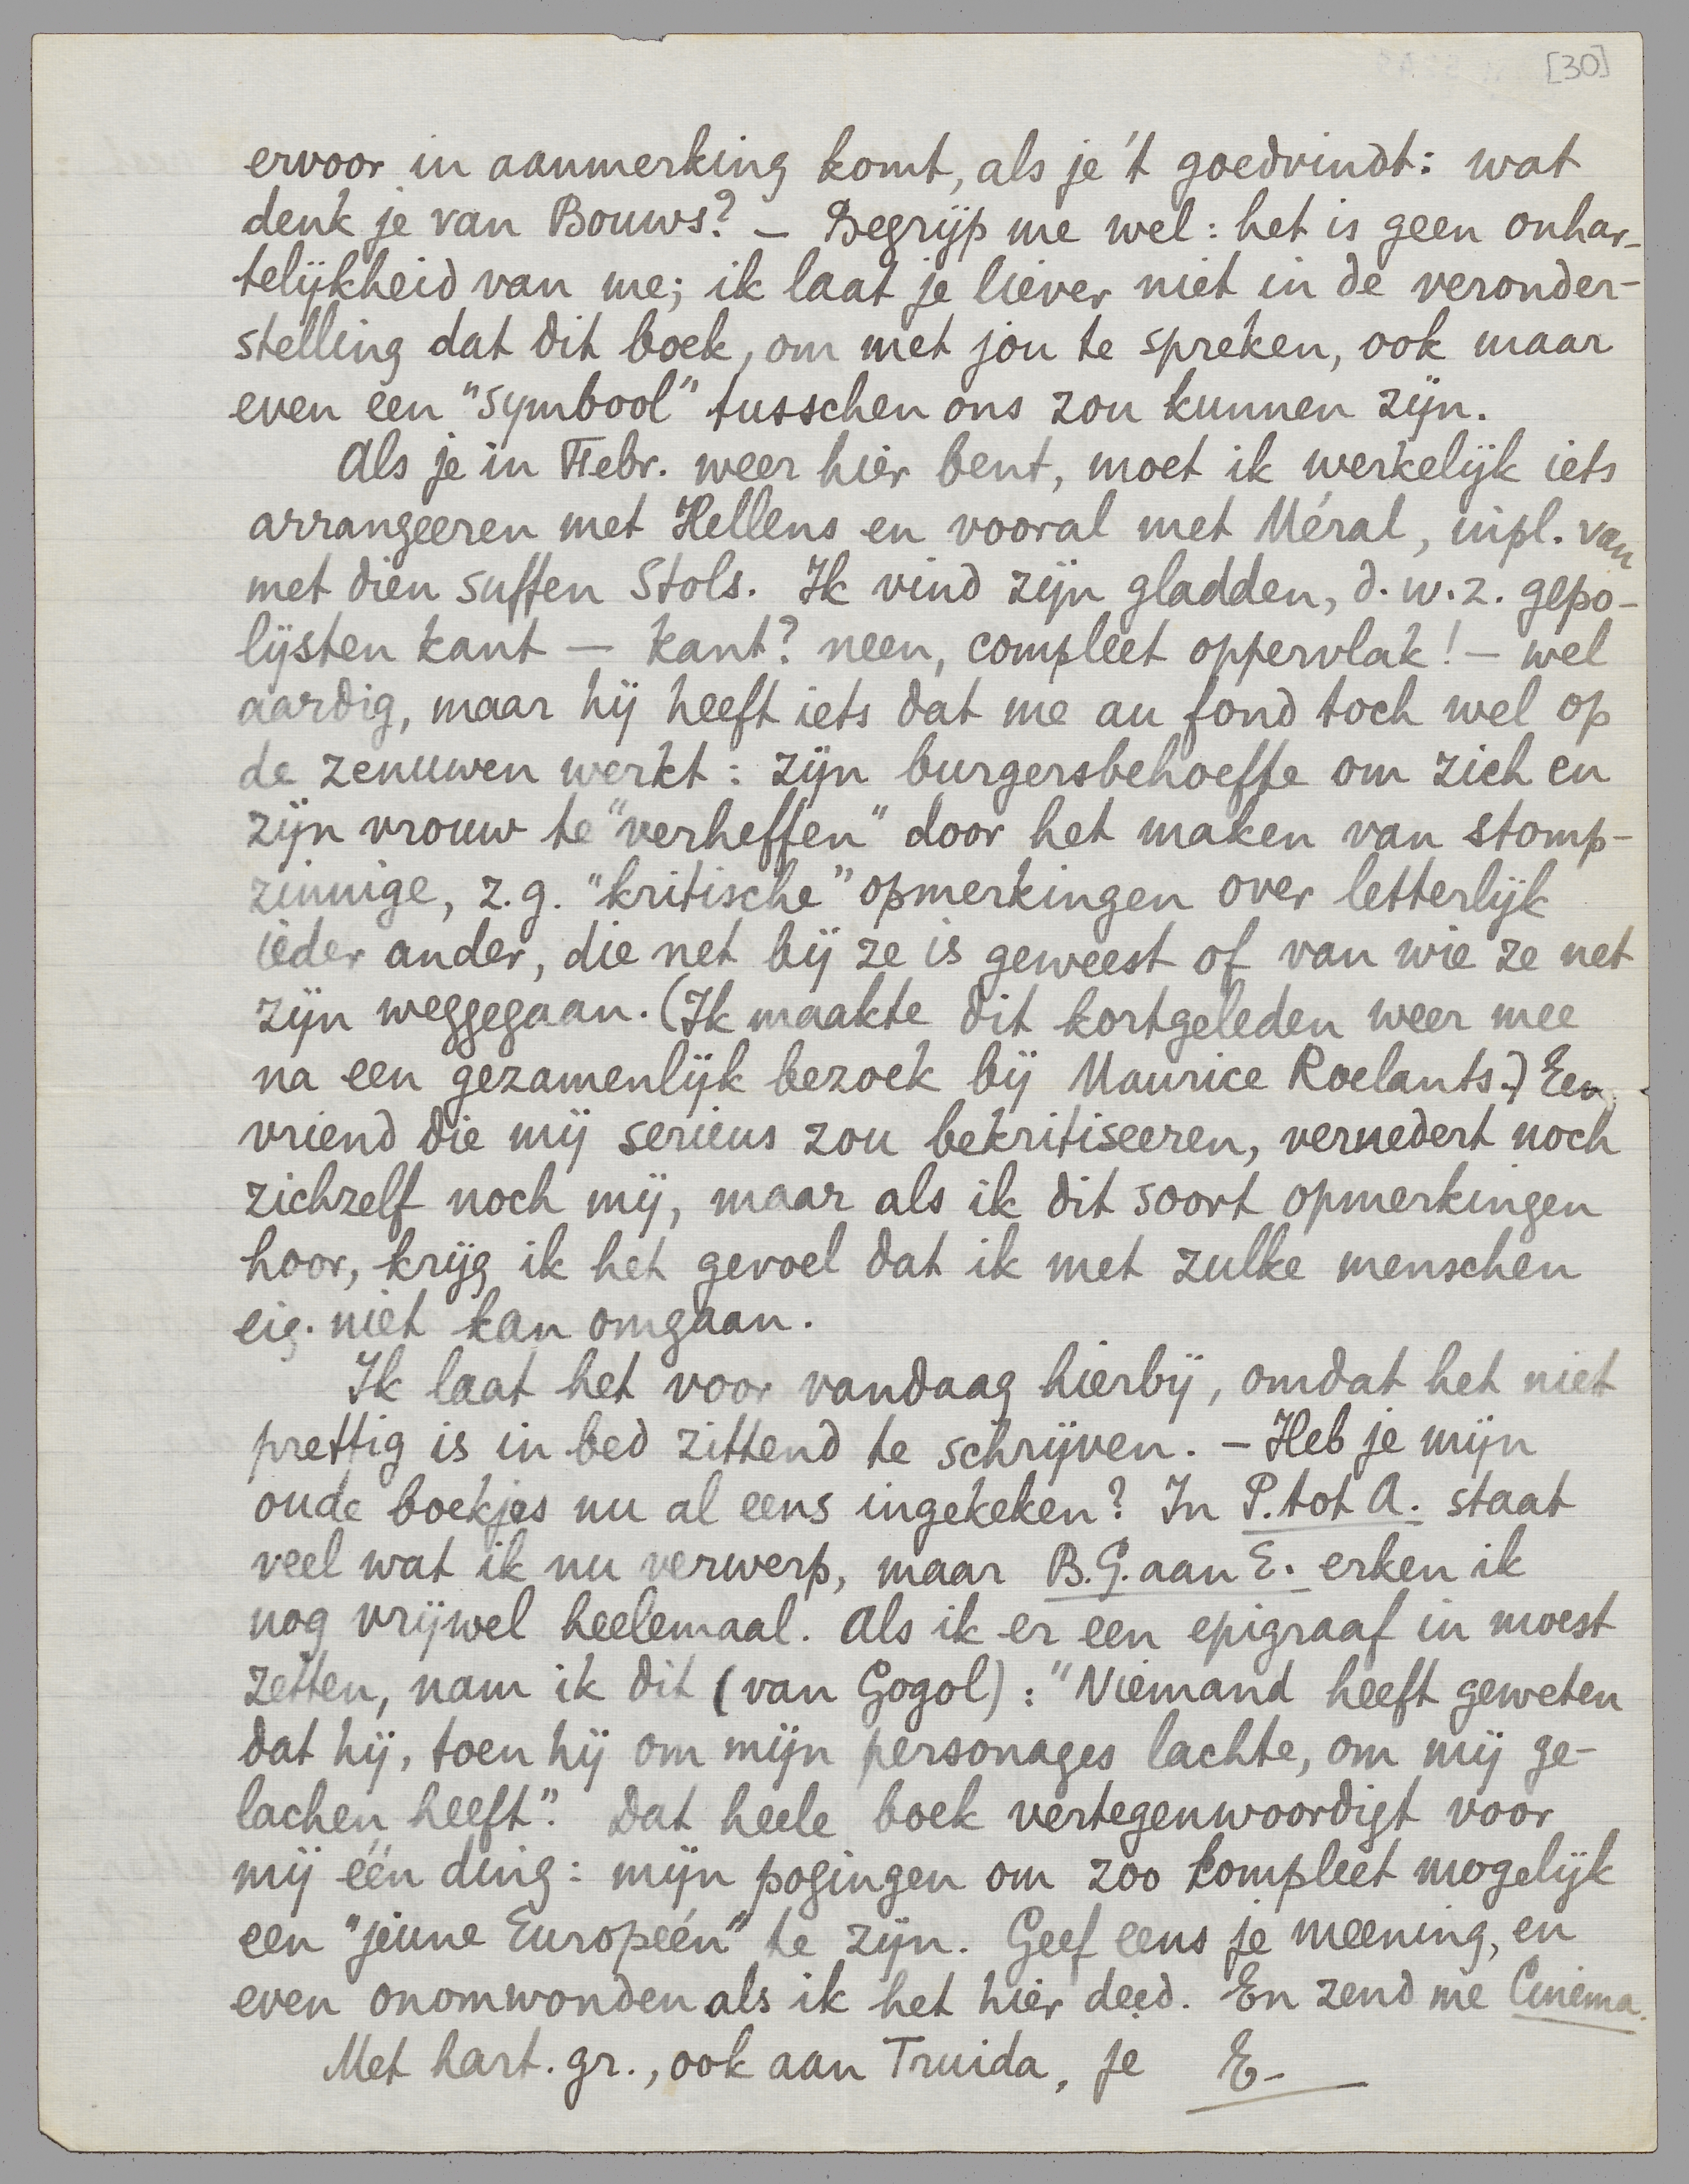 [30]
ervoor in aanmerking komt, als je 't goedvindt: wat
denk je van Bouws? – Begrijp me wel: het is geen onhar-
telijkheid van me; ik laat je liever niet in de veronder-
stelling dat dit boek, om met jou te spreken, ook maar
even een "symbool" tusschen ons zou kunnen zijn.
Als je in Febr. weer hier bent, moet ik werkelijk iets
arrangeeren met Hellens en vooral met Méral, inpl. van
met dien suffen Stols. Ik vind zijn gladden, d.w.z. gepo-
lijsten kant – kant? neen, compleet oppervlak! – wel
aardig, maar hij heeft iets dat me au fond toch wel op
de zenuwen werkt: zijn burgersbehoefte om zich en
zijn vrouw te "verheffen" door het maken van stomp-
zinnige, z.g. "kritische" opmerkingen over letterlijk
ieder ander, die net bij ze is geweest of van wie ze net
zijn weggegaan. (Ik maakte dit kortgeleden weer mee
na een gezamenlijk bezoek bij Maurice Roelants.) Een
vriend die mij serieus zou bekritiseeren, vernedert noch
zichzelf noch mij, maar als ik dit soort opmerkingen
hoor, krijg ik het gevoel dat ik met zulke menschen
eig. niet kan omgaan.
Ik laat het voor vandaag hierbij, omdat het niet
prettig is in bed zittend te schrijven. – Heb je mijn
oude boekjes nu al eens ingekeken? In P. tot A. staat
veel wat ik nu verwerp, maar B.G. aan E. erken ik
nog vrijwel heelemaal. Als ik er een epigraaf in moest
zetten, nam ik dit (van Gogol): "Niemand heeft geweten
dat hij, toen hij om mijn personages lachte, om mij ge-
lachen heeft". Dat heele boek vertegenwoordigt voor
mij één ding: mijn pogingen om zoo kompleet mogelijk
een "jeune Européen" te zijn. Geef eens je meening, en
even onomwonden als ik het hier deed. En zend me Cinema.
Met hart. gr., ook aan Truida, je E.